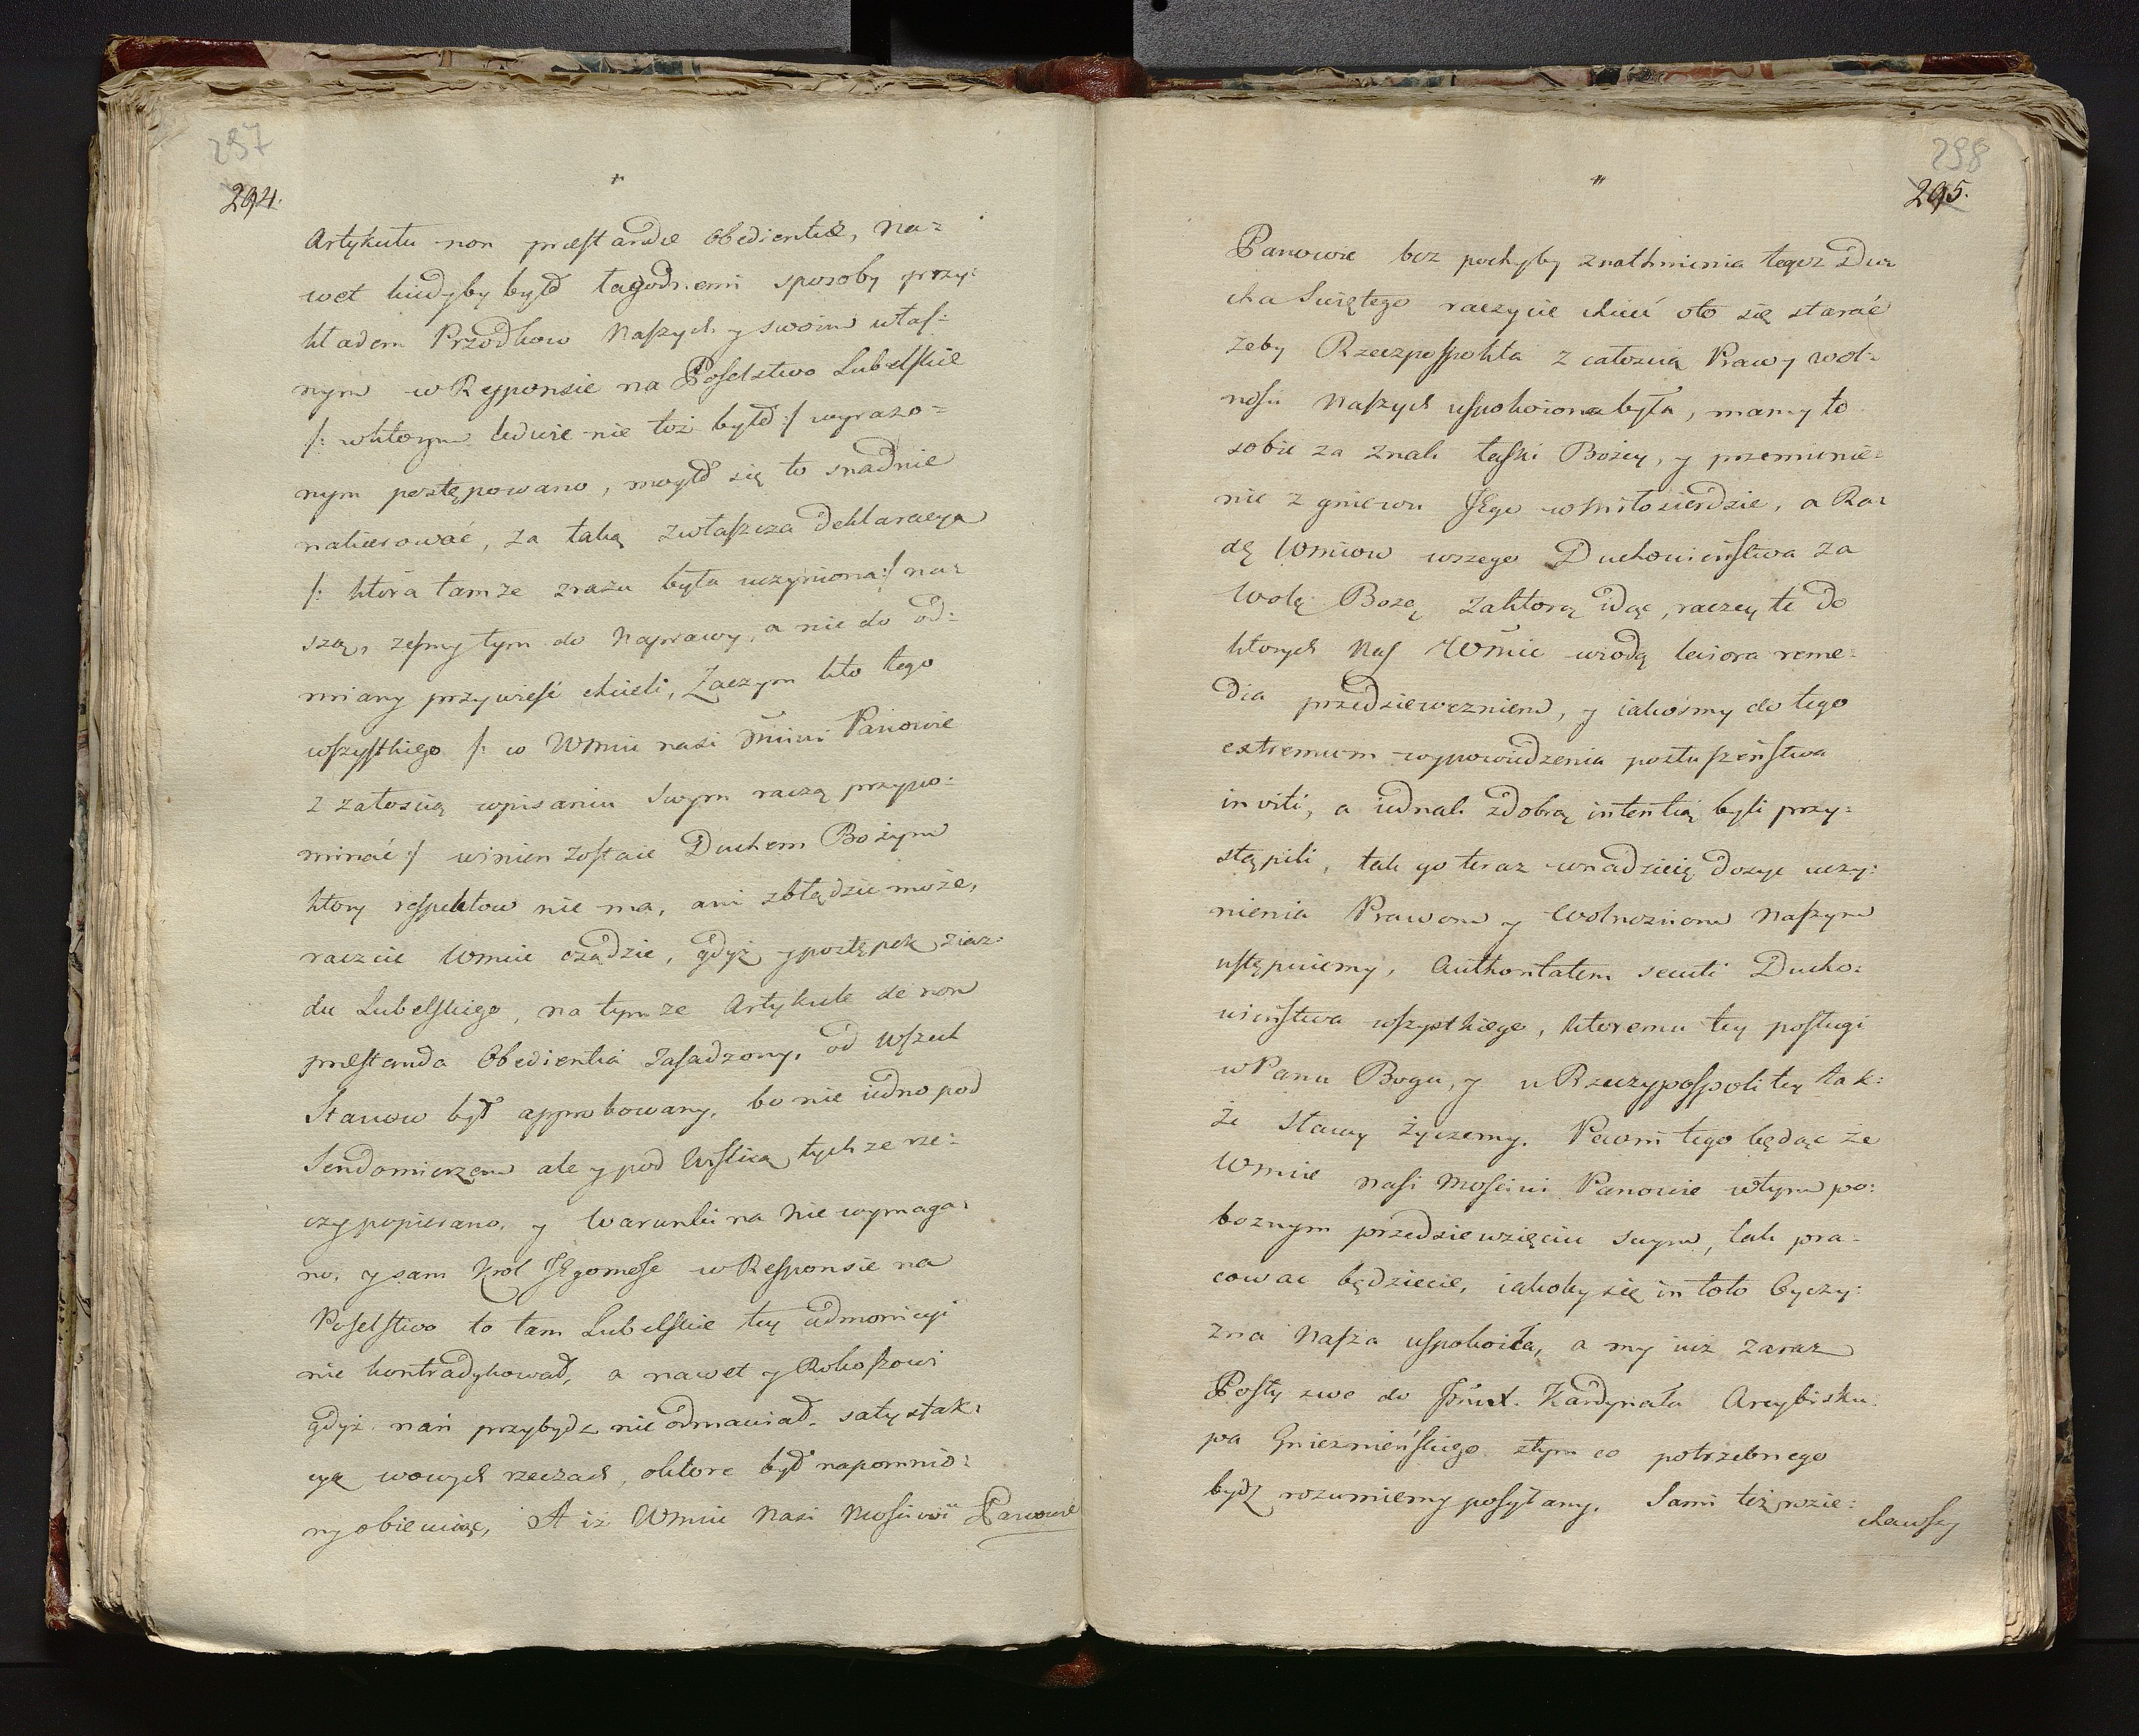 297
294.
Artykułu non præstandæ Obedientiæ, na=
wet kiedyby było łagodnemi sposoby przy=
kładem Przodkow Naszych y swoim włas=
nym w Responsie na Poselstwo Lubelskie
/: wktorym ledwie nie toż było :/ wyrazo=
nym postępowano, mogło się to snadnie
nakierować, za taką zwłaszcza Deklaracyą
/: ktora tamże zrazu była uczyniona :/ na=
szą, zesmy tym do Naprawy, a nie do od=
miany przywieść chcieli, Zaczym kto tego
wszystkiego /: co Wmcie nasi Mciwi Panowie
z załoscią wpisaniu Swym raczą przypo=
minać :/ winien zostaie Duchem Bożym
ktory respektow nie ma, ani zbłądzić może,
raczcie Wmcie osądzić, gdyż y postępek ziaz=
du Lubelskiego, na tymze Artykule de non
præstanda Obedientia zasadzony, od wszech
Stanow był approbowany, bo nie iedno pod
Sendomierzem ale y pod Wislicą tychze rze=
czy popierano, y Warunku na nie wymaga=
no, y sam Krol JEgomość w Responsie na
Poselstwo to tam Lubelskie tey admonicyi
nie kontradykował, a nawet y Rokoszowi
gdyż nań przybydź nie odmawiał, satysfak=
cyą wowych rzeczach, oktore był napomnio=
ny obiecuiąc, A iż Wmcie Nasi Mosciwi Panowie
298
295.
Panowie bez pochyby znatchnienia tegoż Du=
cha Swiętego raczycie chcieć oto się starać
żeby Rzeczpospolita z całoscią Praw y wol=
nosci Naszych uspokoiona była, mamy to
sobie za znak łaski Bożey, y przemienie=
nie z gniewu JEgo w miłosierdzie, a Ra=
dę Wmciow wszego Duchowieństwa za
Wolę Bożą, zaktorą idąc, raczey te do
ktorych Nas Wmcie wiodą leviora reme=
dia przedsiewezniem, y iakośmy do tego
extremum wypowiedzenia posłuszeństwa
inviti, a iednak zdobrą intentią byli przy=
stąpili, tak go teraz wnadzieię dosyc uczy=
nienia Prawom y Wolnosciom Naszym
ustępuiemy, Authoritatem secuti Ducho=
wieństwa wszystkiego, ktoremu tey posługi
w Panu Bogu, y u Rzeczypospolitey tak=
że sławy życzemy. Pewni tego będąc że
Wmcie nasi Mosciwi Panowie wtym po=
boznym przedsiewzięciu swym, tak pra=
cowac będziecie, iakoby się in toto Oyczy=
zna Nasza uspokoiła, a my iuż zaraz
Posły swe do Kardynała Arcybisku
pa Gnieznieńskiego ztym co potrzebnego
bydź rozumiemy posyłamy. Sami też rozie=
chawszy